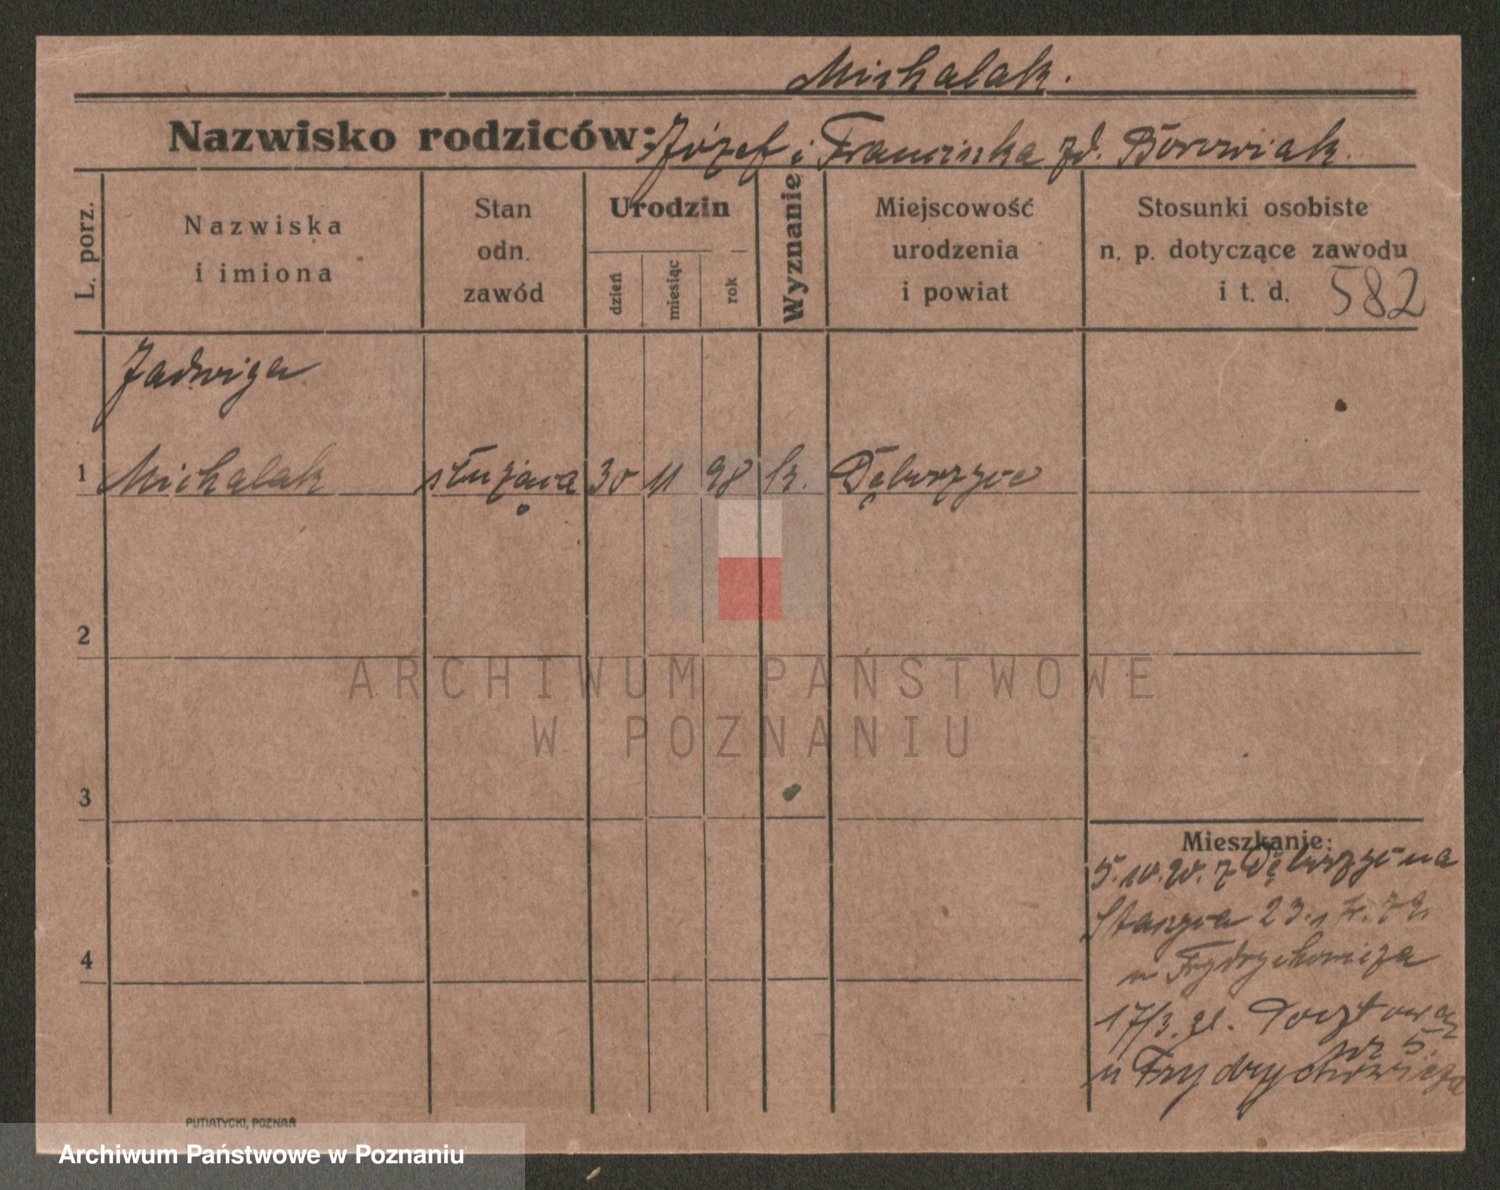 Michalak.
Nazwisko rodziców: Józef i Franciszka zd. Borowiak.
L. porz.
Nazwiska
i imiona
Stan
odn.
zawód
Urodzin
dzień
miesiąc
rok
Wyznanie
Miejscowość
urodzenia
i powiat
Stosunki osobiste
n. p. dotyczące zawodu
i t. d. 582
Jadwiga
1 Michalak służąca 30 11 98 k. 
2
3
4
Mieszkanie:
5.10.20. z na
23.
u Frydrychowicza
17/3. 21. Pocztowa
nr 5.
u Frydrychowicza
PUTIATYCKI, POZNAŃ
ARCHIWUM PAŃSTWOWE
W POZNANIU
Archiwum Państwowe w Poznaniu